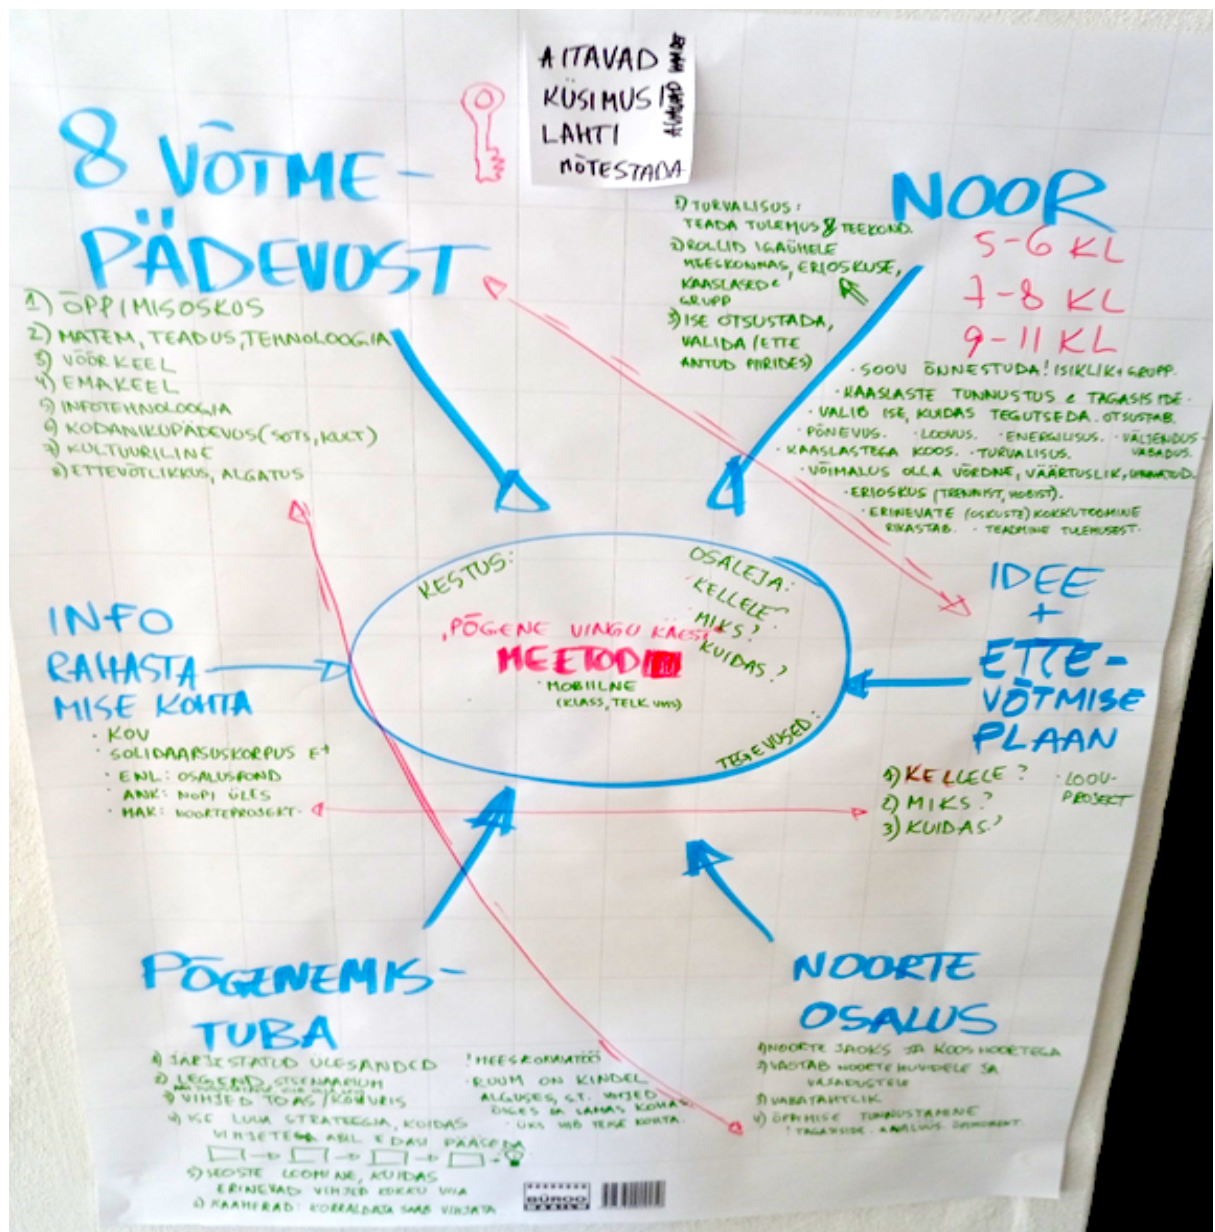 AITAVAD
KÜSIMUSI
LAHTI
MÕTESTADA
8 VÕTME-
PÄDEVUST
1) ÕPPIMISOSKUS
2) MATEM, TEADUS, TEHNOLOOGIA
3) VÕÕRKEEL
4) EMAKEEL
5) INFOTEHNOLOOGIA
6) KODANIKUPÄDEVUS (SOTS, KULT)
7) KULTUURILINE
8) ETTEVÕTLIKKUS, ALGATUS
NOOR
5-6 KL
7-8 KL
9-11 KL
1) TURVALISUS:
TEADA TULEMUS & TEEKOND.
2) ROLLID IGAÜHELE
MEESKONNAS, ERIOSKUSE,
KAASLASED &
GRUPP
3) ISE OTSUSTADA,
VALIDA (ETTE
ANTUD PIIRIDES)
· SOOV ÕNNESTUDA! ISIKLIK + GRUPP.
· KAASLASTE TUNNUSTUS & TAGASISIDE.
· VALIB ISE, KUIDAS TEGUTSEDA. OTSUSTAB.
· PÕNEVUS. · LOOVUS. · ENERGILISUS. · VÄLJENDUS-
VABADUS.
· KAASLASTEGA KOOS. · TURVALISUS.
· VÕIMALUS OLLA VÕRDNE, VÄÄRTUSLIK,
· ERIOSKUS (TRENNIST, HOBIST).
· ERINEVATE (OSKUSTE) KOKKUTOOMINE
RIKASTAB. · TEADMINE TULEMUSEST.
KESTUS:
OSALEJA:
· KELLELE?
· MIKS?
· KUIDAS?
"PÕGENE VINGU KÄEST"
MEETOD
· MOBIILNE
(KLASS, TELK VMS)
TEGEVUSED:
INFO
RAHASTA-
MISE KOHTA
· KOV
· SOLIDAARSUSKORPUS E+
· ENL: OSALUSFOND
ANK: NOPI ÜLES
· HAK: NOORTEPROJEKT.
IDEE
+
ETTE-
VÕTMISE
PLAAN
1) KELLELE?
2) MIKS?
3) KUIDAS?
· LOOV-
PROJEKT
PÕGENEMIS-
TUBA
1) JÄRJESTATUD ÜLESANDED
2) LEGEND, STSENAARIUM
3) VIHJED TOAS/KOHVRIS
4) ISE LUUA STRATEEGIA, KUIDAS
VIHJETEGA ABIL EDASI PÄÄSEDA
5) SEOSTE LOOMINE, KUIDAS
ERINEVAD VIHJED KOKKU VIIA
6) KAAMERAD: KORRALDAJA SAAB VIHJATA
! MEESKONNATÖÖ
· RUUM ON KINDEL
ALGUSES, S.T. VIHJED
ÕIGES JA SAMAS KOHAS.
· ÜKS VIIB TEISE KOHTA.
NOORTE
OSALUS
1) NOORTE JAOKS JA KOOS NOORTEGA
2) VASTAB NOORTE HUVIDELE JA
VAJADUSTELE
3) VABATAHTLIK
4) ÕPPIMISE TUNNUSTAMINE
! TAGASISIDE. ANALÜÜS.
BÜROO
MAAILM